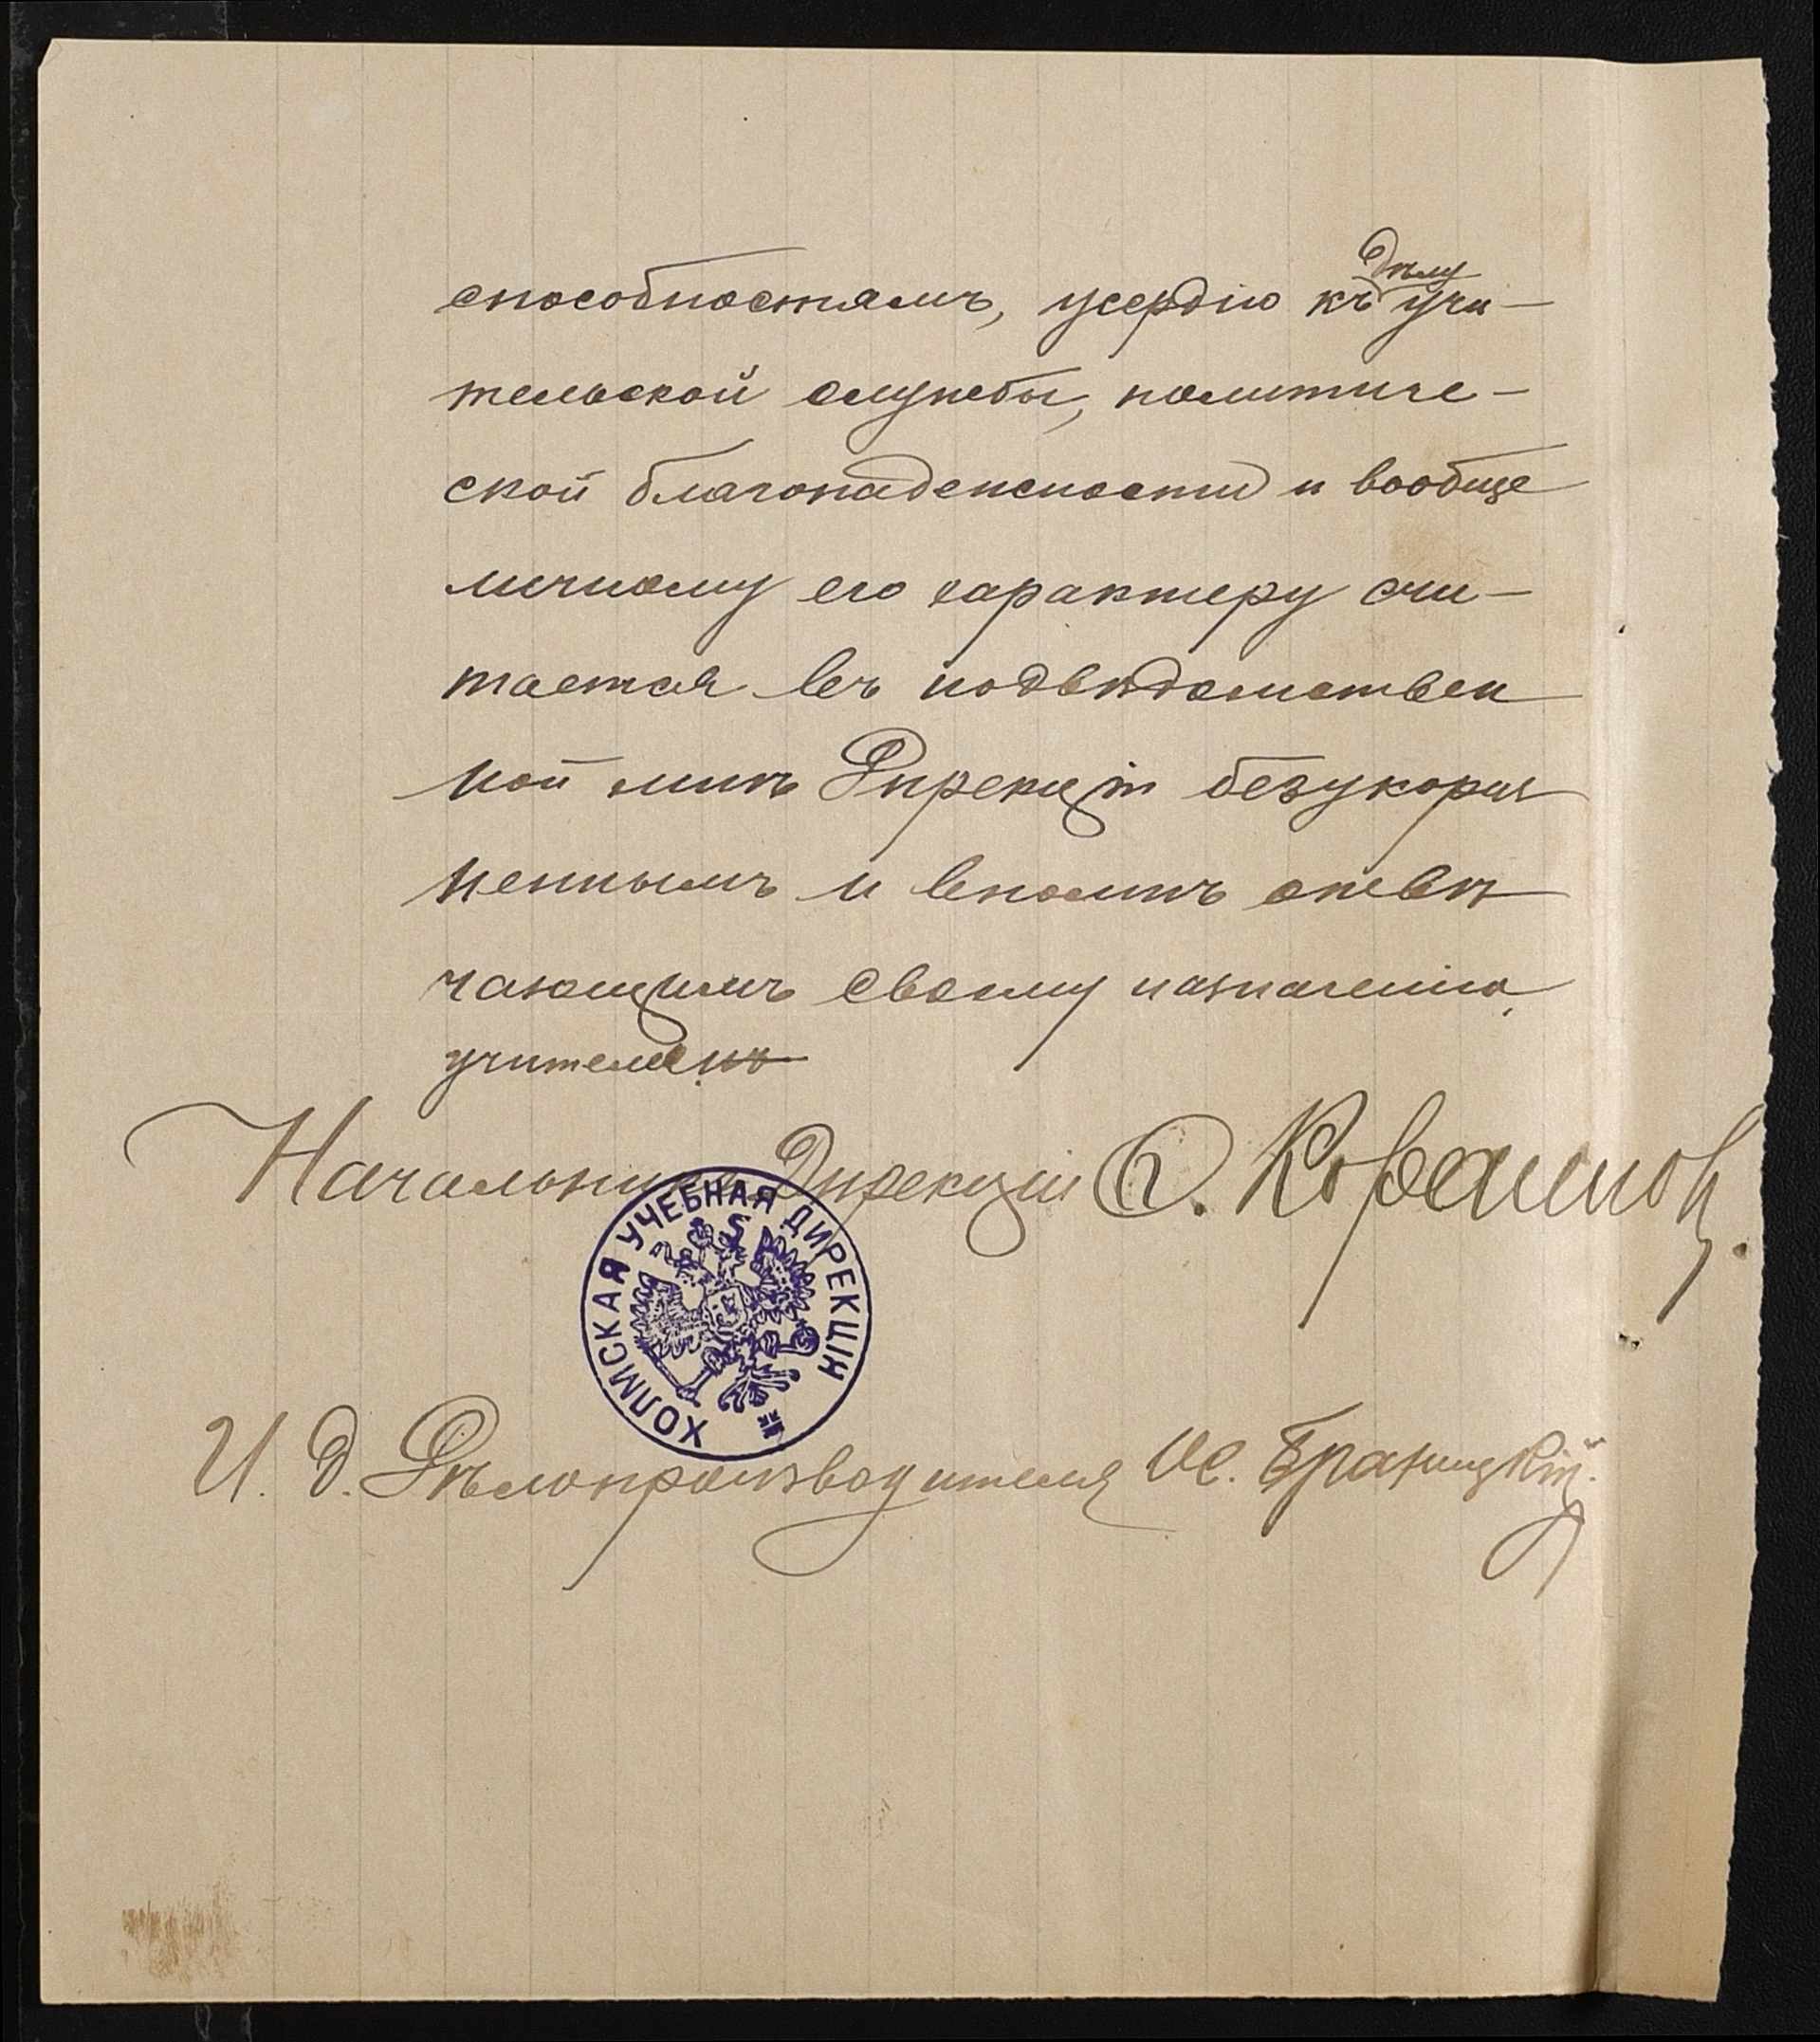 дѣлу
способностямъ, усердію къ учи-
тельской службы, политиче-
ской благонадежности и вообще
личному его характеру счи-
тается въ подвѣдомствен
ной мнѣ Дирекціи безукориз
неннымъ и вполнѣ отвѣ
чающимъ своему назначенію,
учителемъ
Начальникъ Дирекціи
ХОЛМСКАЯ УЧЕБНАЯ ДИРЕКЦІЯ
И. д. Дѣлопроизводителя Ос. Браницкій.